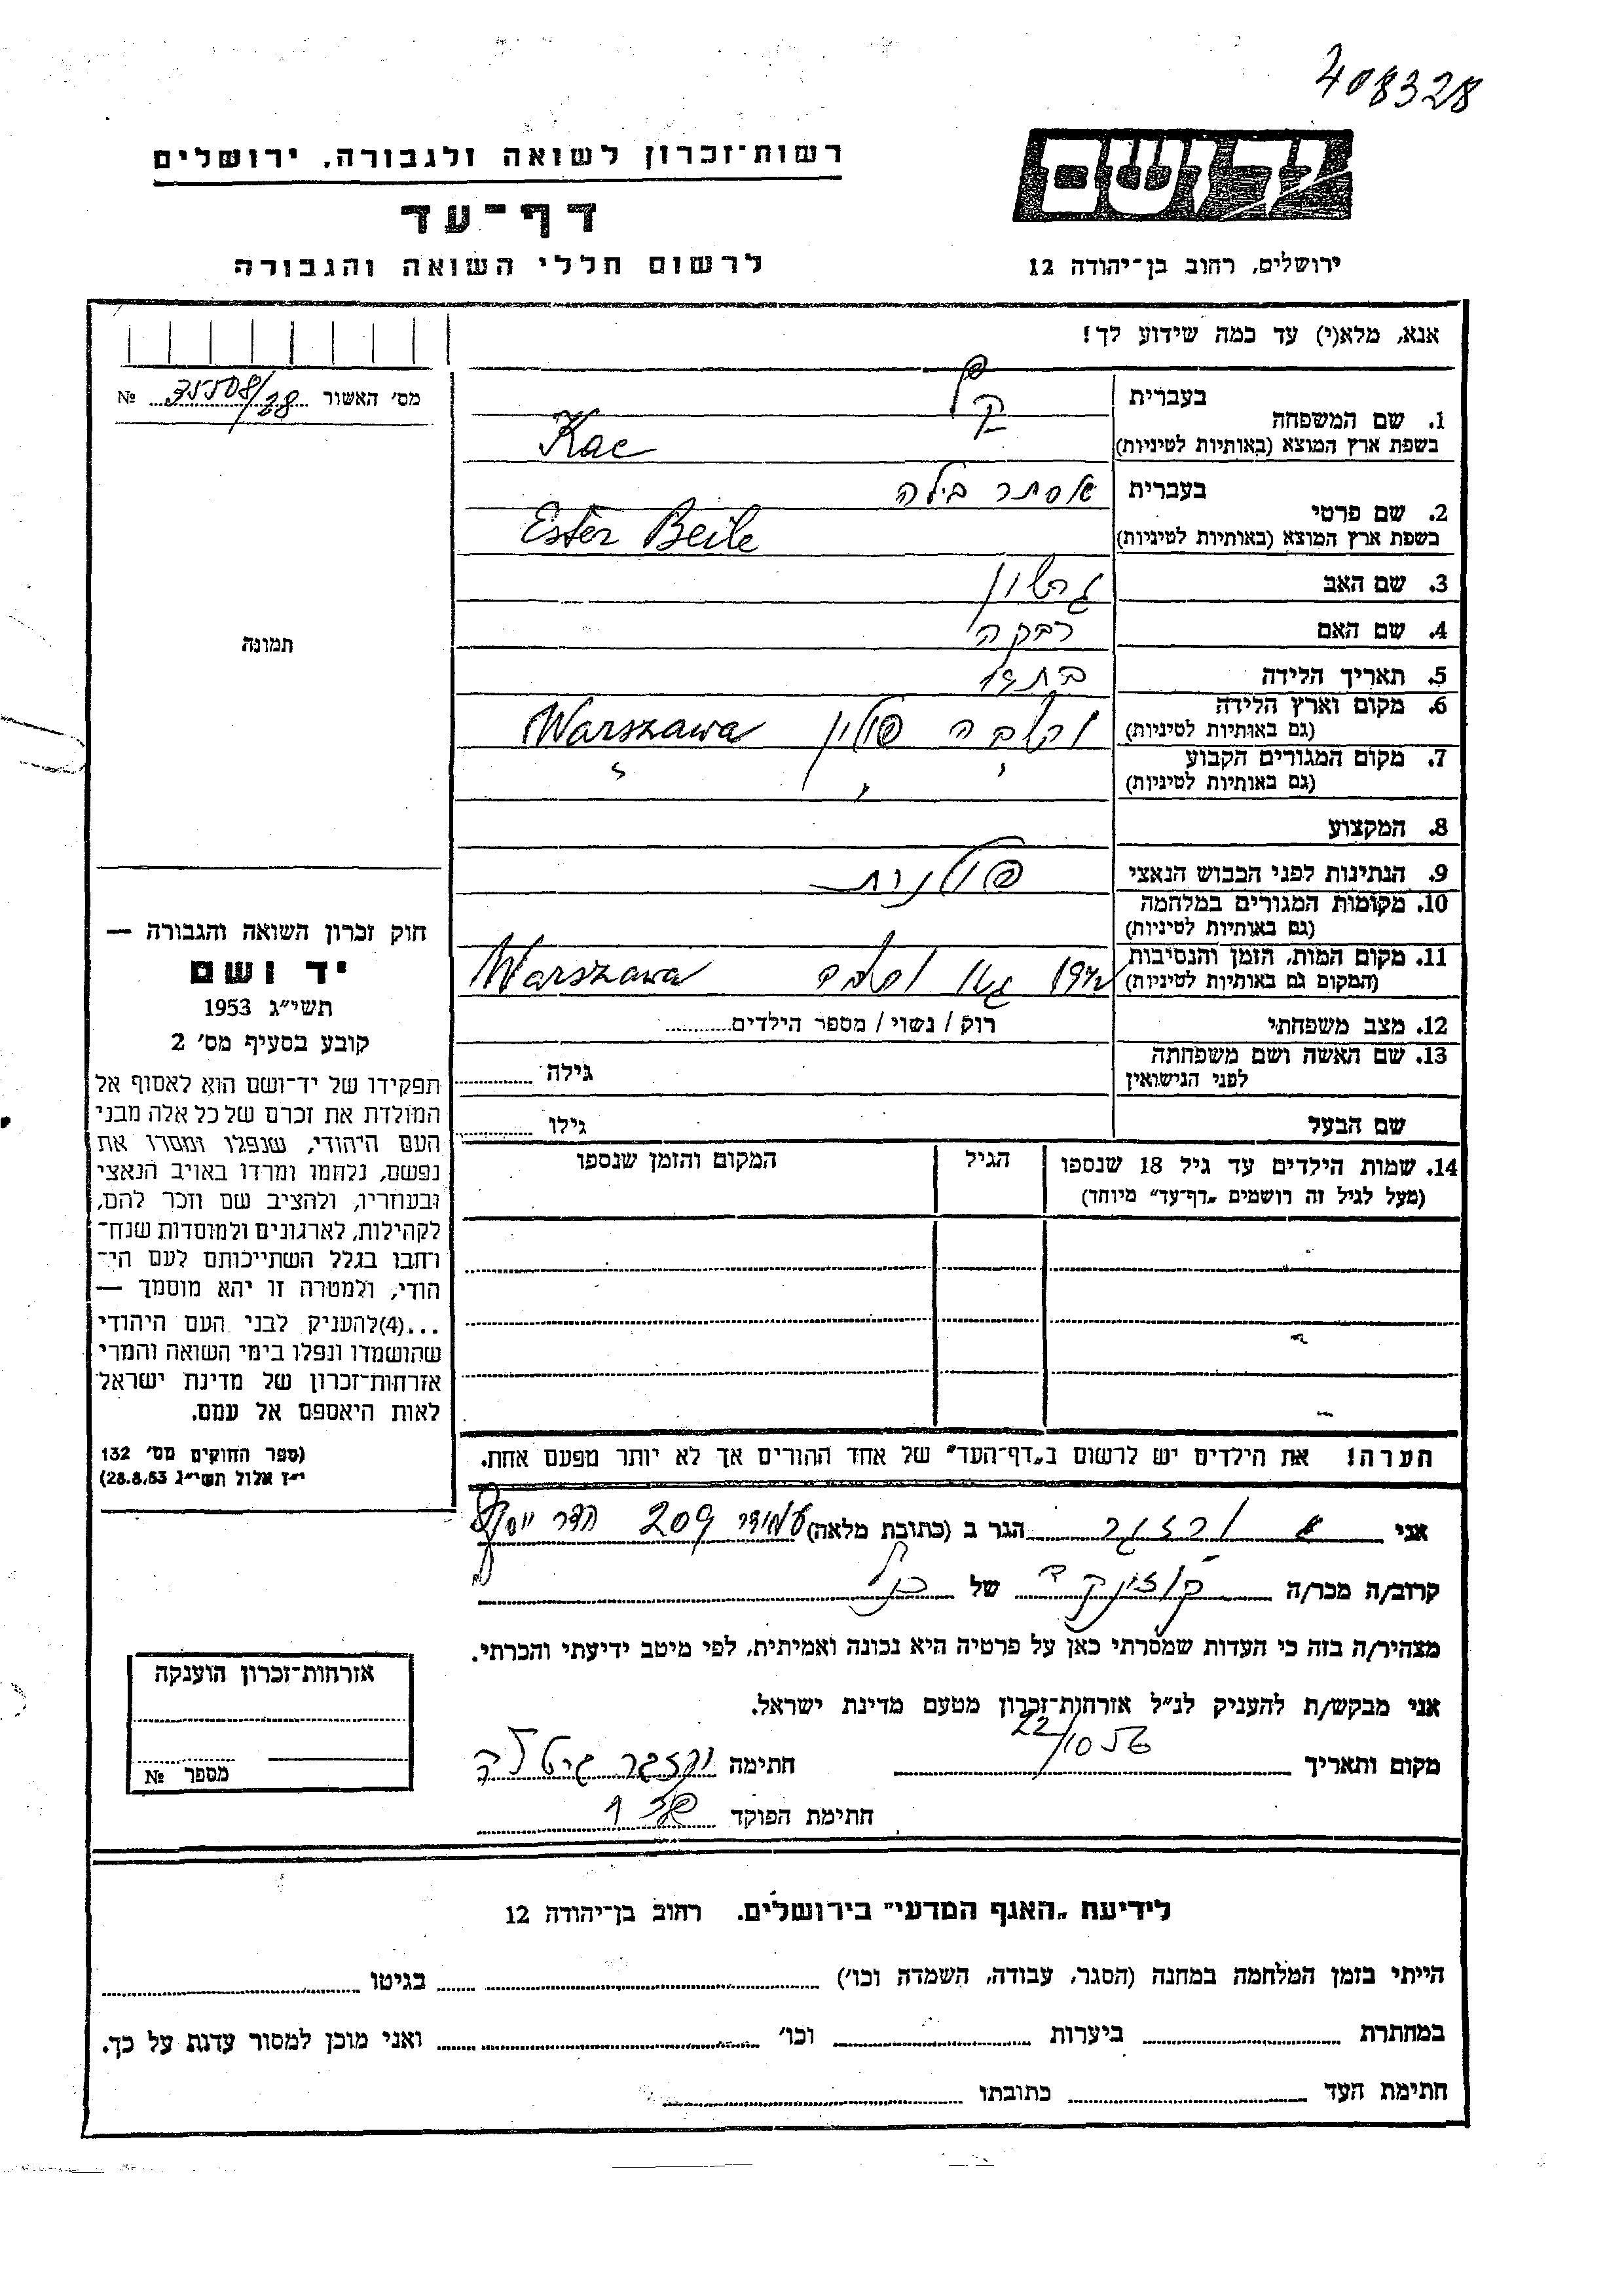 408328
רשות־זכרון לשואה ולגבורה, ירושלים
יד ושם
דף־עד
לרשום חללי השואה והגבורה
ירושלים, רחוב בן־יהודה 12
אנא, מלא(י) עד כמה שידוע לך!
מס׳ האשור 35508/28 №
1. שם המשפחה
בעברית כץ
בשפת ארץ המוצא (באותיות לטיניות) Kac
2. שם פרטי
בעברית אסתר בילה
בשפת ארץ המוצא (באותיות לטיניות) Ester Beile
3. שם האב גרשון
4. שם האם רבקה
5. תאריך הלידה בת 19
6. מקום וארץ הלידה
(גם באותיות לטיניות) ורשבה פולין Warszawa
7. מקום המגורים הקבוע
(גם באותיות לטיניות) " " "
8. המקצוע
9. הנתינות לפני הכבוש הנאצי פולנית
10. מקומות המגורים במלחמה
(גם באותיות לטיניות)
11. מקום המות, הזמן והנסיבות
(המקום גם באותיות לטיניות) 1942 גטו ורשבה Warszawa
12. מצב משפחתי רוק / נשוי / מספר הילדים
13. שם האשה ושם משפחתה
לפני הנישואין גילה
שם הבעל גילו
14. שמות הילדים עד גיל 18 שנספו הגיל המקום והזמן שנספו
(מעל לגיל זה רושמים „דף־עד״ מיוחד)
הערה! את הילדים יש לרשום ב„דף־העד״ של אחד ההורים אך לא יותר מפעם אחת.
תמונה
חוק זכרון השואה והגבורה —
יד ושם
תשי״ג 1953
קובע בסעיף מס׳ 2
תפקידו של יד־ושם הוא לאסוף אל
המולדת את זכרם של כל אלה מבני
העם היהודי, שנפלו ומסרו את
נפשם, נלחמו ומרדו באויב הנאצי
ובעוזריו, ולהציב שם וזכר להם,
לקהילות, לארגונים ולמוסדות שנח־
רחבו בגלל השתייכותם לעם הי־
הודי, ולמטרה זו יהא מוסמך —
...(4)להעניק לבני העם היהודי
שהושמדו ונפלו בימי השואה והמרי
אזרחות־זכרון של מדינת ישראל
לאות היאספם אל עמם.
(ספר החוקים מס׳ 132
י״ז אלול תשי״ג 28.8.53)
אני הגר ב (כתובת מלאה) עמידר 209 הדר יוסף
קרוב/ה מכר/ה קוזינקה של
מצהיר/ה בזה כי העדות שמסרתי כאן על פרטיה היא נכונה ואמיתית, לפי מיטב ידיעתי והכרתי.
אני מבקש/ת להעניק לנ״ל אזרחות־זכרון מטעם מדינת ישראל.
מקום ותאריך 22/10 56 חתימה
חתימת הפוקד
אזרחות־זכרון הוענקה
מספר №
לידיעת „האגף המדעי״ בירושלים. רחוב בן־יהודה 12
הייתי בזמן המלחמה במחנה (הסגר, עבודה, השמדה וכו׳) בגיטו
במחתרת ביערות וכו׳ ואני מוכן למסור עדות על כך.
חתימת העד כתובתו